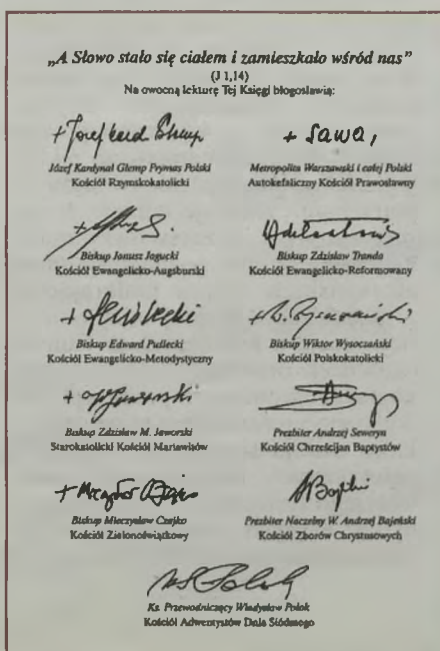 „A Słowo stało się ciałem i zamieszkało wśród nas”
(J 1,14)
Na owocną lekturę Tej Księgi błogosławią:
+ Józef kard. Glemp
+ Sawa,
Józef Kardynał Glemp Prymas Polski
Kościół Rzymskokatolicki
Metropolita Warszawski i całej Polski
Autokefaliczny Kościół Prawosławny
Biskup Janusz Jagucki
Kościół Ewangelicko-Augsburski
Biskup Zdzisław Tranda
Kościół Ewangelicko-Reformowany
Biskup Edward Puślecki
Kościół Ewangelicko-Metodystyczny
Biskup Wiktor Wysoczański
Kościół Polskokatolicki
Biskup Zdzisław M. Jaworski
Starokatolicki Kościół Mariawitów
Prezbiter Andrzej Seweryn
Kościół Chrześcijan Baptystów
Biskup Mieczysław Czajko
Kościół Zielonoświątkowy
Prezbiter Naczelny W. Andrzej Bajeński
Kościół Zborów Chrystusowych
Ks. Przewodniczący Władysław Polok
Kościół Adwentystów Dnia Siódmego